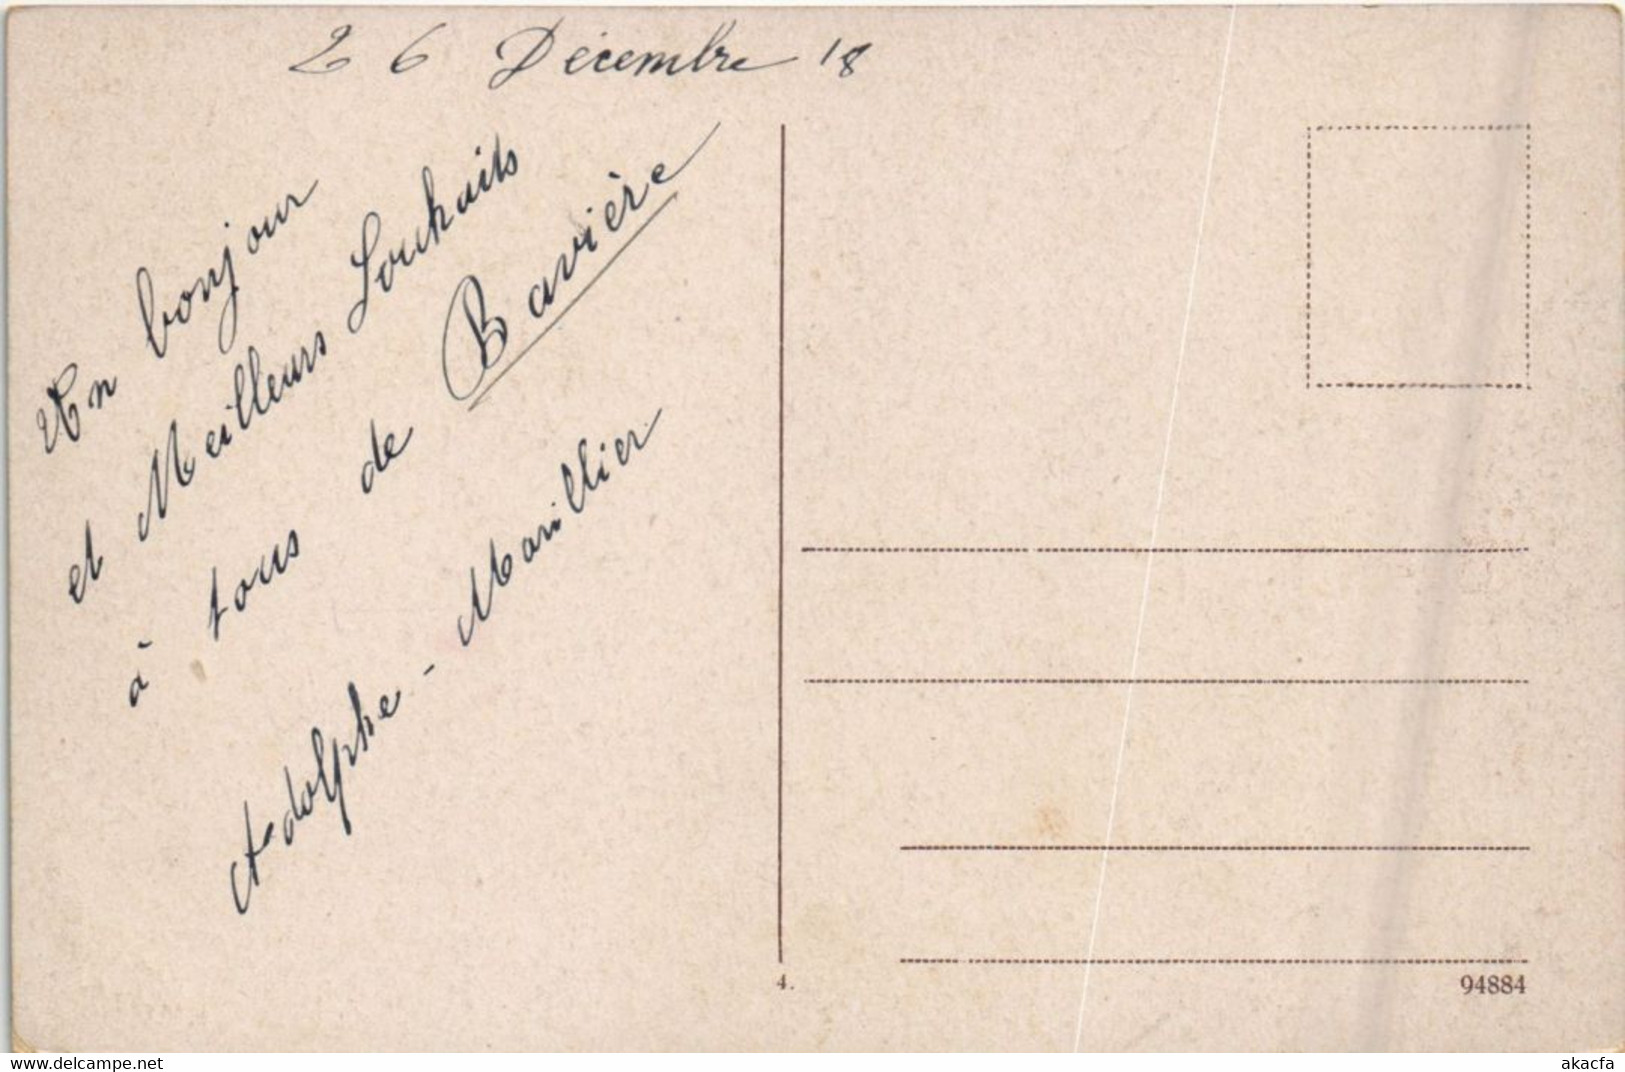 26 Décembre 18
Un bonjour
et Meilleurs Souhaits
à tous de Bavière
Adolphe - Marillier
4.
94884
akacfa.com
akacfa